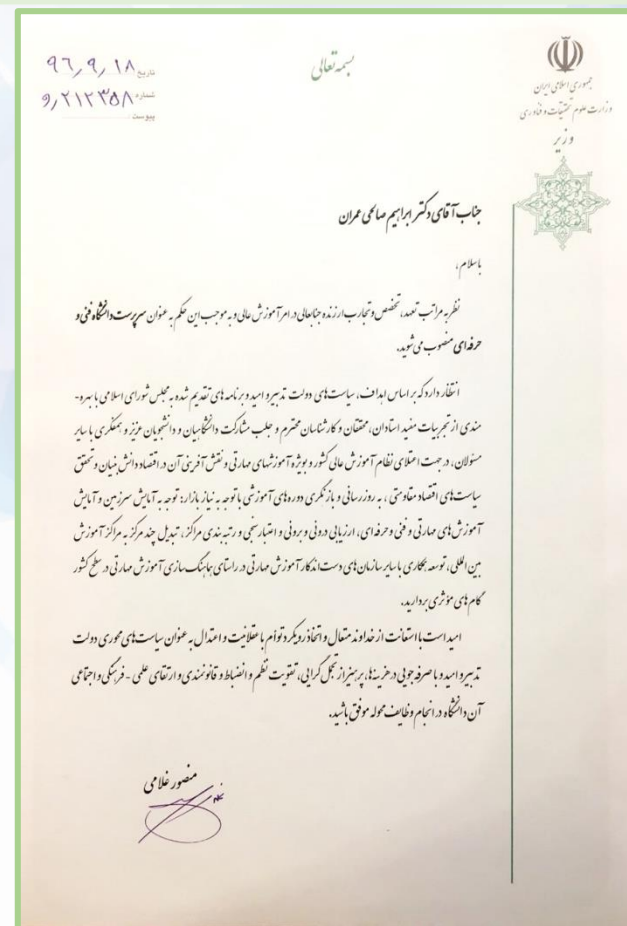 بسمه تعالی
جمهوری اسلامی ایران
وزارت علوم تحقیقات و فناوری
وزیر
تاریخ ۹۶,۹,۱۸
شماره ۲۱۲۳۵۸/و
پیوست
جناب آقای دکتر ابراهیم صالحی عمران
باسلام،
نظر به مراتب تعهد، تخصص و تجارب ارزنده جنابعالی در امر آموزش عالی و به موجب این حکم به عنوان سرپرست دانشگاه فنی و
حرفه‌ای منصوب می‌شوید.
انتظار دارد که بر اساس اهداف، سیاست‌های دولت تدبیر و امید و برنامه‌های تقدیم شده به مجلس شورای اسلامی با بهره-
مندی از تجربیات مفید استادان، محققان و کارشناسان محترم و جلب مشارکت دانشگاهیان و دانشجویان عزیز و همفکری با سایر
مسئولان، در جهت اعتلای نظام آموزش عالی کشور و بویژه آموزشهای مهارتی و نقش آفرینی آن در اقتصاد دانش بنیان و تحقق
سیاست‌های اقتصاد مقاومتی، به روزرسانی و بازنگری دوره‌های آموزشی با توجه به نیاز بازار: توجه به آمایش سرزمین و آمایش
آموزش‌های مهارتی و فنی و حرفه‌ای، ارزیابی درونی و برونی و اعتبارسنجی و رتبه بندی مراکز، تبدیل چند مرکز به مراکز آموزش
بین المللی، توسعه همکاری با سایر سازمان‌های دست اندکار آموزش مهارتی در راستای هماهنگ سازی آموزش مهارتی در سطح کشور
گام‌های مؤثری بردارید.
امید است با استعانت از خداوند متعال و اتخاذ رویکرد توأم با عقلانیت و اعتدال به عنوان سیاست‌های محوری دولت
تدبیر و امید و با صرفه جویی در هزینه‌ها، پرهیز از تجمل گرایی، تقویت نظم و انضباط و قانونمندی و ارتقای علمی - فرهنگی و اجتماعی
آن دانشگاه در انجام وظایف محوله موفق باشید.
منصور غلامی